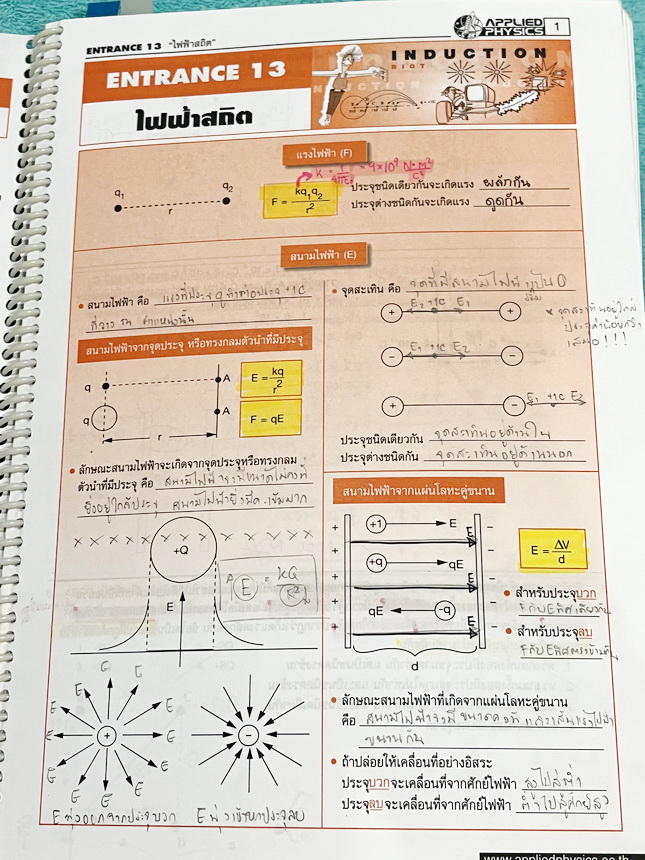 ENTRANCE 13 "ไฟฟ้าสถิต"
APPLIED PHYSICS
1
ENTRANCE 13
INDUCTION
RIOT
ไฟฟ้าสถิต
แรงไฟฟ้า (F)
K = 1/4πε₀ = 9×10⁹ N·m²/C²
q₁ q₂
r
F = kq₁q₂/r²
ประจุชนิดเดียวกันจะเกิดแรง ผลักกัน
ประจุต่างชนิดกันจะเกิดแรง ดูดกัน
สนามไฟฟ้า (E)
• สนามไฟฟ้า คือ แรงที่ประจุ q ทำต่อประจุ +1C
ที่วาง ณ ตำแหน่งนั้น
สนามไฟฟ้าจากจุดประจุ หรือทรงกลมตัวนำที่มีประจุ
q A
E = kq/r²
q A
F = qE
r
• ลักษณะสนามไฟฟ้าจะเกิดจากจุดประจุหรือทรงกลม
ตัวนำที่มีประจุ คือ สนามไฟฟ้าจะมีขนาดไม่คงที่
ยิ่งอยู่ใกล้ประจุ สนามไฟฟ้ายิ่งมีค่าเข้มมาก
+Q
A E = kQ/R²
E
E E E E E E E E E
+ −
E พุ่งออกจากประจุบวก E พุ่งเข้าหาประจุลบ
• จุดสะเทิน คือ จุดที่มีสนามไฟฟ้ารวมเป็น 0
+ E₂ +1C E₁ +
* จุดสะเทินอยู่ใกล้
ประจุค่าน้อยกว่า
เสมอ!!!
− E₁ +1C E₂ −
+ − E₁ +1C E₂
ประจุชนิดเดียวกัน จุดสะเทินอยู่ด้านใน
ประจุต่างชนิดกัน จุดสะเทินอยู่ด้านนอก
สนามไฟฟ้าจากแผ่นโลหะคู่ขนาน
+ +1 E −
E
+ +q qE −
E
+ qE −q −
E
d
E = ΔV/d
• สำหรับประจุบวก
F กับ E ทิศเดียวกัน
• สำหรับประจุลบ
F กับ E ทิศตรงข้ามกัน
• ลักษณะสนามไฟฟ้าที่เกิดจากแผ่นโลหะคู่ขนาน
คือ สนามไฟฟ้าจะมีขนาดคงที่ และเส้นแรงไฟฟ้า
ขนานกัน
• ถ้าปล่อยให้เคลื่อนที่อย่างอิสระ
ประจุบวกจะเคลื่อนที่จากศักย์ไฟฟ้า สูงไปต่ำ
ประจุลบจะเคลื่อนที่จากศักย์ไฟฟ้า ต่ำไปสู่ศักย์สูง
www.appliedphysics.co.th